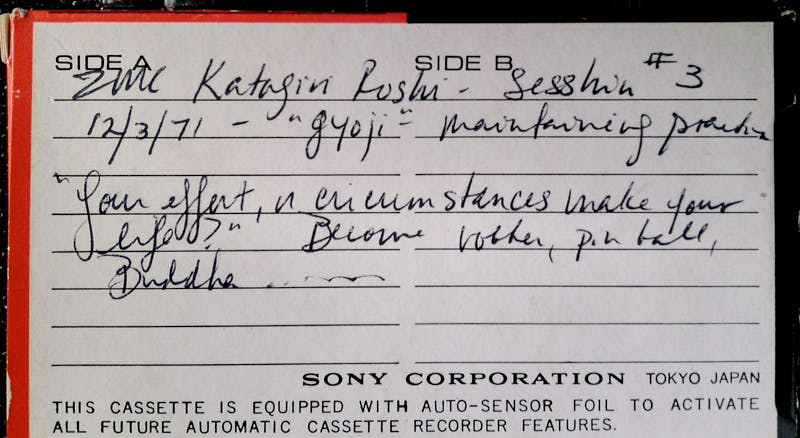 SIDE A SIDE B
ZMC Katagiri Roshi - Sesshin #3
12/3/71 - "gyoji" - maintaining practice
"Your effort, or circumstances make your
life?" Become rubber, pin ball,
Buddha ...
SONY CORPORATION TOKYO JAPAN
THIS CASSETTE IS EQUIPPED WITH AUTO-SENSOR FOIL TO ACTIVATE
ALL FUTURE AUTOMATIC CASSETTE RECORDER FEATURES.